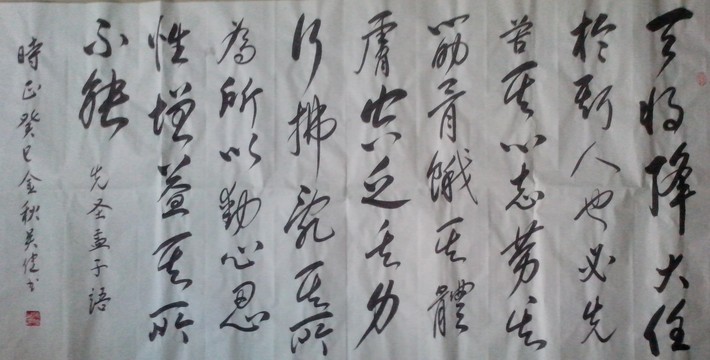 天将降大任
於斯人也必先
苦其心志劳其
筋骨餓其體
膚空乏其身
行拂乱其所
為所以動心忍
性增益其所
不能
先圣孟子語
時正癸巳金秋吴书